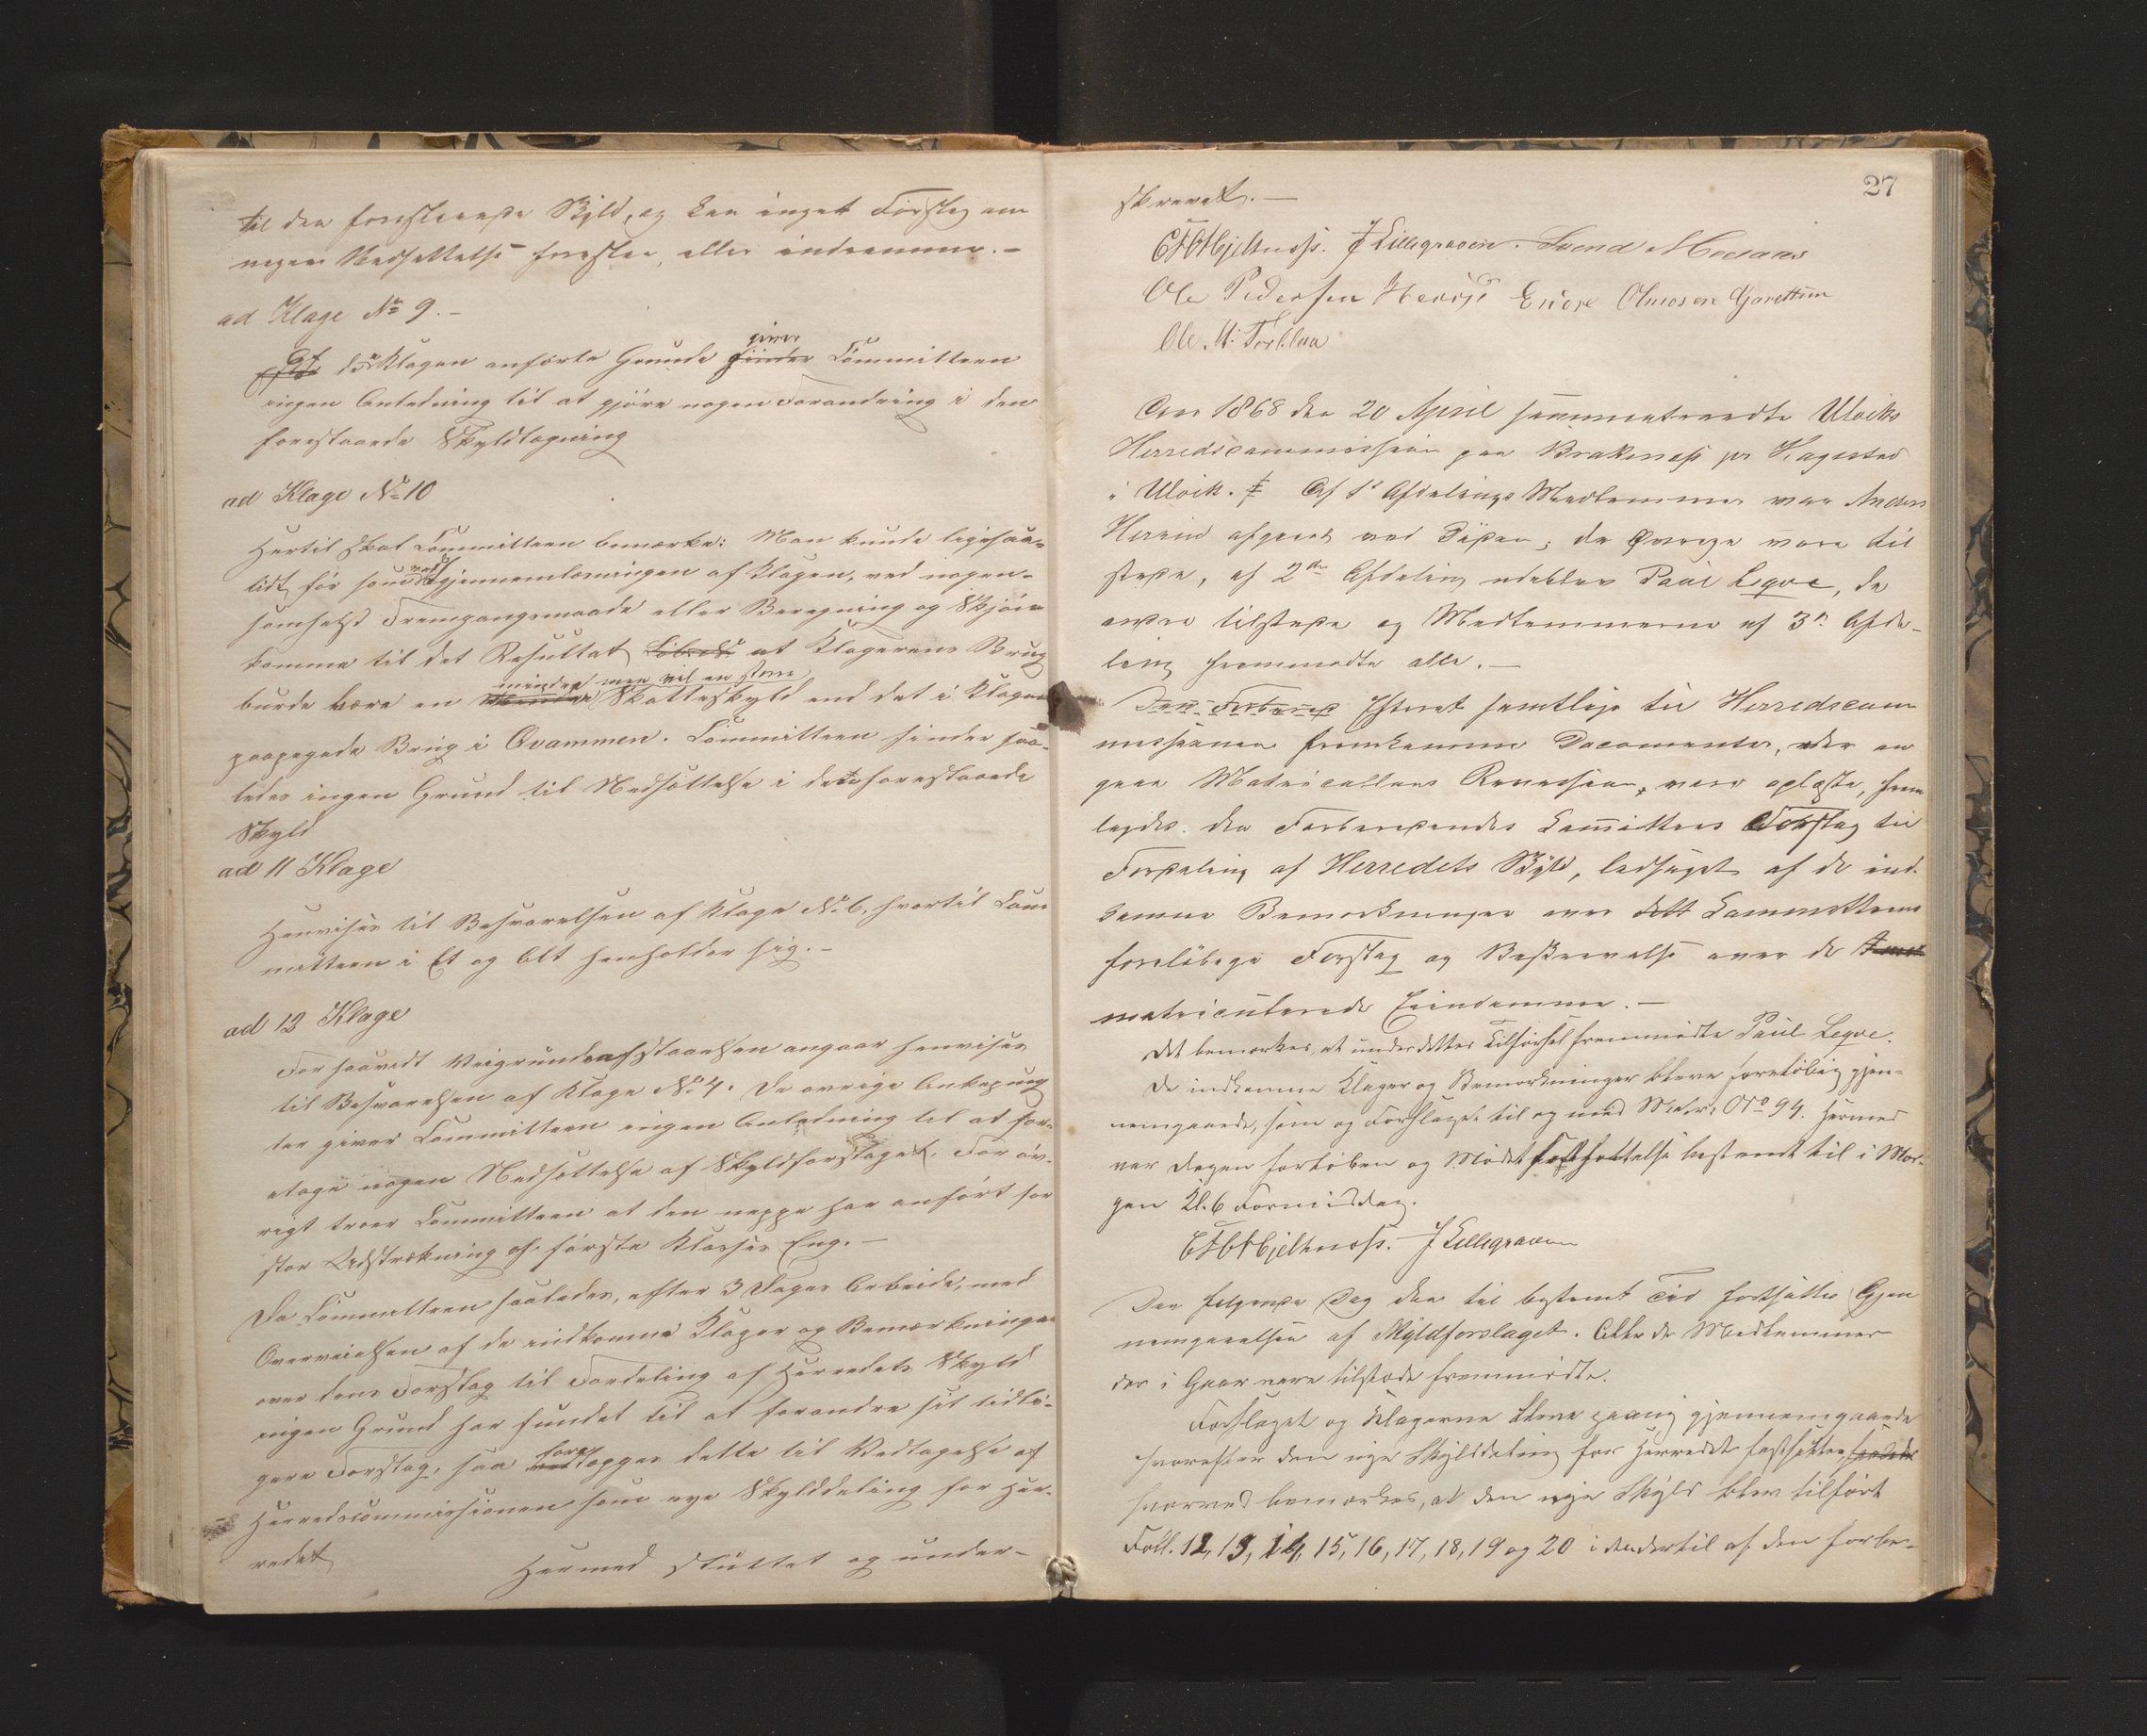 til den foreslaaede Skyld, og kan inget Forslag om
nogen Nedsættelse foreslaa, eller indrømme.-
ad Klage No 9.-
De i Klagen anførte Grunde giver Committeen
ingen Anledning til at gjöre nogen Forandring i den
foreslaaede Skyldlægning
ad Klage No 10
Hertil skal Committeen bemærke: Man kunde ligesaa-
lidt för som ved Gjennemlæsningen af Klagen, ved nogen-
somhelst Fremgangsmaade eller Beregning og Skjön
komme til det Resultat at Klagerens Brug
burde bære en mindre men vel en större Skatteskyld end det i Klagen
paapegede Brug i Qvammen. Committeen finder saa-
ledes ingen Grund til Nedsættelse i dets foreslaaede
Skyld
ad 11 Klage
Henvises til Besvarelsen af Klage No 6, hvortil Com
mitteen i Et og Alt henholder sig.-
ad 12 Klage
Forsaavidt Veigrundsafstaaelsen angaar henvises
til Besvarelsen af Klage No 4. De øvrige Ankepunk
ter giver Committeen ingen Anledning til at fore-
tage nogen Nedsættelse af Skyldforslaget. For öv-
rigt troer Committeen at den neppe har anfört for
stor Udstrækning af förste Klasses Eng.-
Da Committeen saaledes, efter 3 Dages Arbeide, med
Overveielsen af de indkomne Klager og Bemærkninger
over dens Forslag til Fordeling af Herredets Skyld
ingen Grund har fundet til at forandre sit tidli-
gere Forslag, saa forelægges dette til Vedtagelse af
Herredscommissionen som nye Skylddeling for Her-
redet
Hermed sluttet og under-
27
skrevet.-
J Lillegraven. Svend
Ole Pedersen
Ole
Aar 1868 den 20 April sammentraadte Ulviks
Herredscommission paa Brakenæs pr Hagestad
i Ulvik. Af 1ste Afdelings Medlemmer var Anders
afgaaet ved Döden; de Øvrige vare til
stede, af 2den Afdeling udeblev Paul Leqve, de
andre tilstede og Medlemmerne af 3die Afde-
ling fremmødte alle.-
Efterat samtlige til Herredscom
missionen fremkomne Documenter, der an
gaar Matriculens Revission, vare oplæste, frem
lagdes den Forberedende Committees Forslag til
Fordeling af Herredets Skyld, ledsaget af de ind-
komne Bemærkninger over Committeens
foreløbige Forslag og Beskrivelse over de
matriculerede Eiendomme.-
Det bemærkes, at under dette Tilførsel fremmødte Paul Leqve.
De indkomne Klager og Bemærkninger bleve foreløbig gjen-
nemgaaede, som og Forslaget til og med Matr. No 94. Hermed
var Dagen forløben og Mödets Fortsættelse bestemt til i Mor-
gen Kl. 6 Formiddag.
J Lillegraven
Den følgende Dag den til bestemt Tid fortsattes Gjen
nemgaaelsen af Skyldforslaget. Alle de Medlemmer
der i Gaar vare tilstede fremmødte.
Forslaget og Klagerne bleve paany gjennemgaaede
hvorefter den nye Skylddeling for Herredet fastsattes,
hvorved bemærkes, at den nye Skyld blev tilført
Foll. 12, 13, 14, 15, 16, 17, 18, 19 og 20 i den dertil af den forbe-